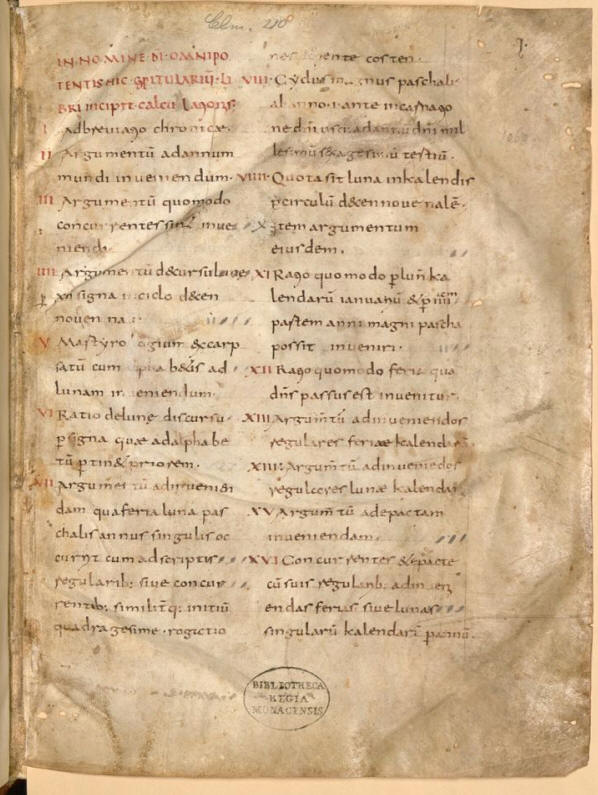 Clm. 210
1.
IN NOMINE DI OMNIPO
TENTIS HIC CAPITULARIŪ LI
BRI INCIPIT CALCULATORIS
I Adbreviatio chronicae
II Argumentū ad annum
mundi inveniendum
III Argumentū quomodo
concurrentes sint inve
niendi
IIII Argumentū de cursu lunae
p xii signa in ciclo decen
novennal
V Martyrologium & carp
satū cum alphabetis ad
lunam inveniendum
VI Ratio de lune discursu
p signa quae ad alphabe
tū ptin& priorem
VII Argumentū ad inveni
dam qua feria luna pas
chalis annus singulis oc
currit cum adscriptis
regularib; sive concur
rentib; similitq; initiū
quadragesime rogatio
nes costen
VIII Cyclus magnus paschal
ab anno ante incarnatio
ne dni
VIIII Quota sit luna in kalendis
p circulū decennovenalē
X Item argumentum
eiusdem
XI Ratio quomodo p luñ ka
lendarū ianuarii & p iiii
partem anni magni pascha
possit inveniri
XII Ratio quomodo feria qua
dñs passus est invenitur
XIII Argumtū ad inveniendos
regulares feriae kalendarū
XIIII Argumtū ad inveniedos
regulares lunae kalendar
XV Argumtū ad epactam
inveniendam
XVI Concurrentes & epacte
cū suis regularib; ad inveni
endas ferias sive lunas
singularū kalendarū
BIBLIOTHECA
REGIA
MONACENSIS